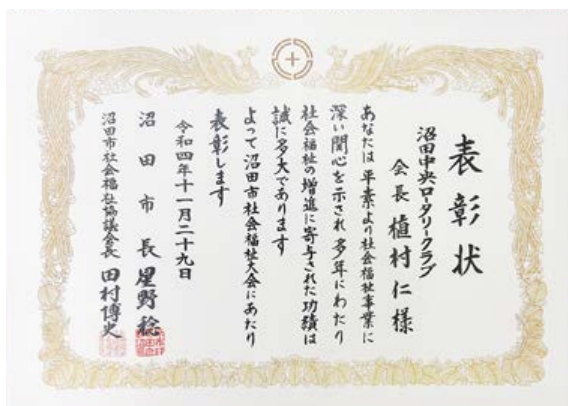 表彰状
沼田中央ロータリークラブ
会長 植村仁様
あなたは平素より社会福祉事業に
深い関心を示され多年にわたり
社会福祉の増進に寄与された功績は
誠に多大であります
よって沼田市社会福祉大会にあたり
表彰します
令和四年十一月二十九日
沼田市長 星野稔
沼田市社会福祉協議会長 田村博史